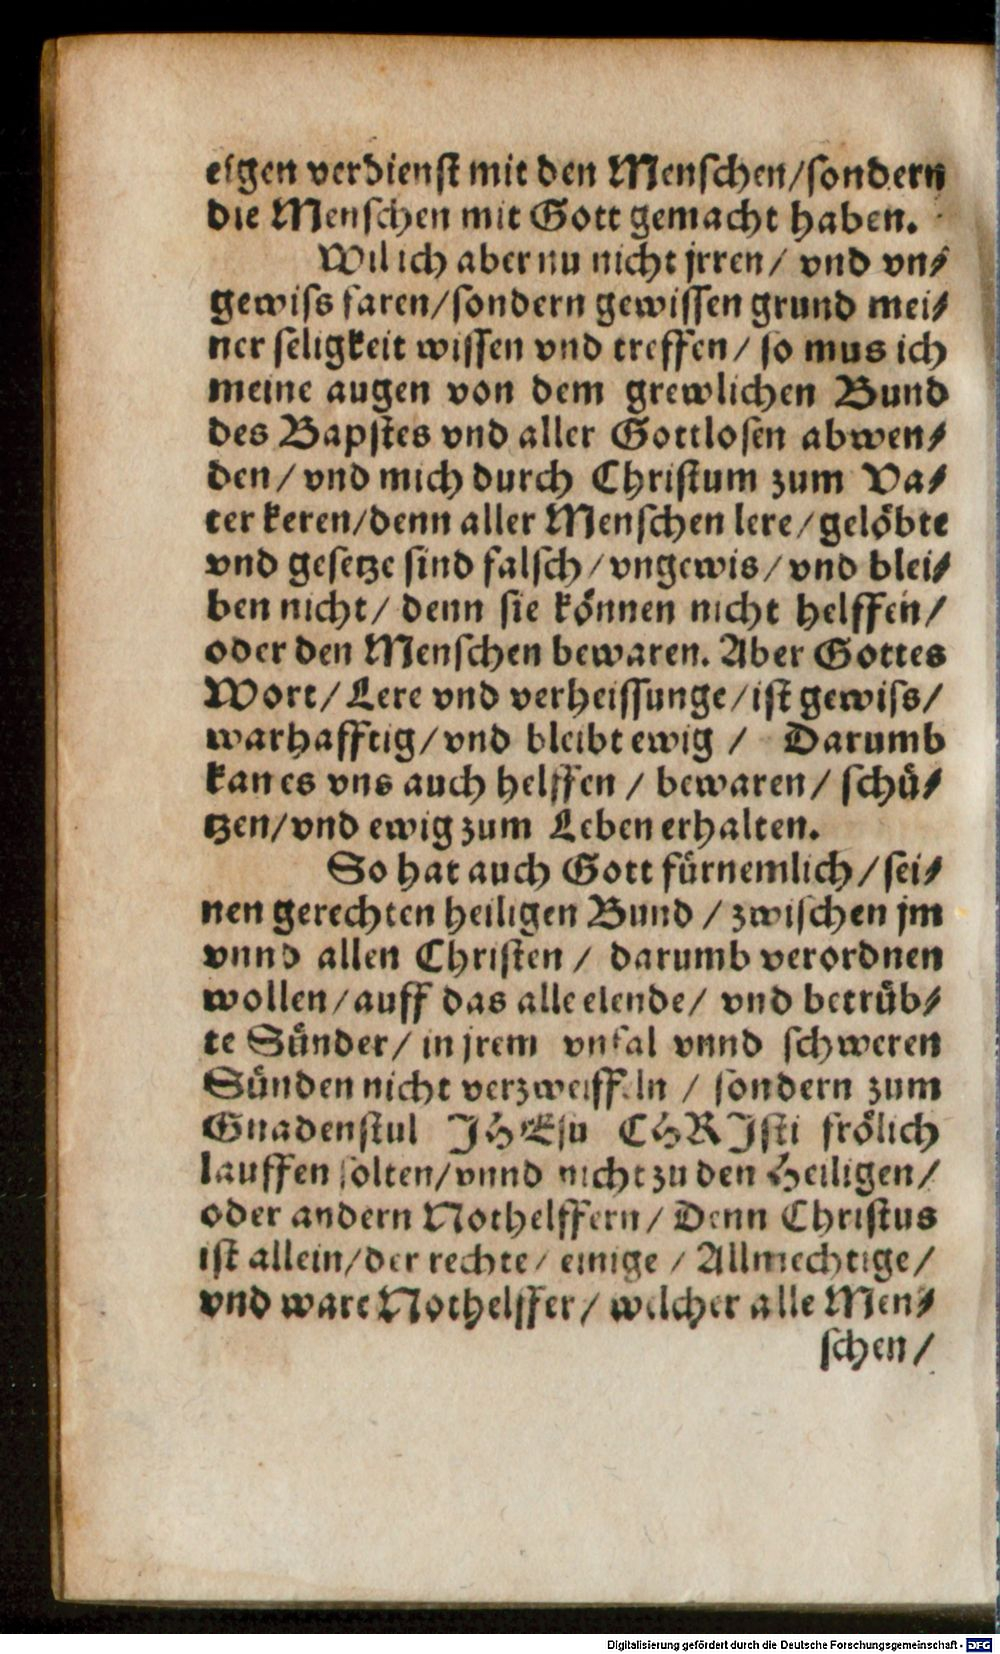 eigen verdienst mit den Menschen/sondern
die Menschen mit Gott gemacht haben.
Wil ich aber nu nicht jrren/ vnd vn⸗
gewiss faren/sondern gewissen grund mei⸗
ner seligkeit wissen vnd treffen/ so mus ich
meine augen von dem grewlichen Bund
des Bapstes vnd aller Gottlosen abwen⸗
den/ vnd mich durch Christum zum Va⸗
ter keren/denn aller Menschen lere/gelöbte
vnd gesetze sind falsch/vngewis/vnd blei⸗
ben nicht/ denn sie können nicht helffen/
oder den Menschen bewaren. Aber Gottes
Wort/Lere vnd verheissunge/ist gewiss/
warhafftig/vnd bleibt ewig / Darumb
kan es vns auch helffen / bewaren/ schü⸗
tzen/vnd ewig zum Leben erhalten.
So hat auch Gott fürnemlich/sei⸗
nen gerechten heiligen Bund / zwischen jm
vnnd allen Christen / darumb verordnen
wollen/auff das alle elende/ vnd betrüb⸗
te Sünder/ in jrem vnfal vnnd schweren
Sünden nicht verzweiffeln / sondern zum
Gnadenstul JHEsu CHRJsti frölich
lauffen solten/vnnd nicht zu den Heiligen/
oder andern Nothelffern/ Denn Christus
ist allein/der rechte/ einige / Allmechtige/
vnd ware Nothelffer/ welcher alle Men⸗
schen/
Digitalisierung gefördert durch die Deutsche Forschungsgemeinschaft - DFG